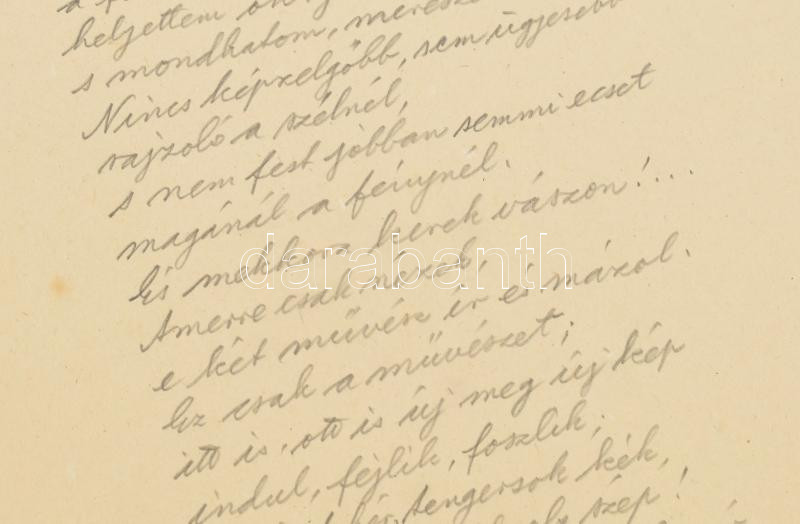 heljettem
s mondhatom, merész
Nincs képzelgőbb, sem ügyesebb
rajzoló a szélnél,
s nem fest jobban semmi ecset
magánál a fénynél.
És mekkora kerek vászon!...
Amerre csak nézek,
e két művész ír és mázol.
Ez csak a művészet;
itt is, ott is új meg új kép
indul, fejlik, foszlik;
tengersok kék,
szép!
darabanth